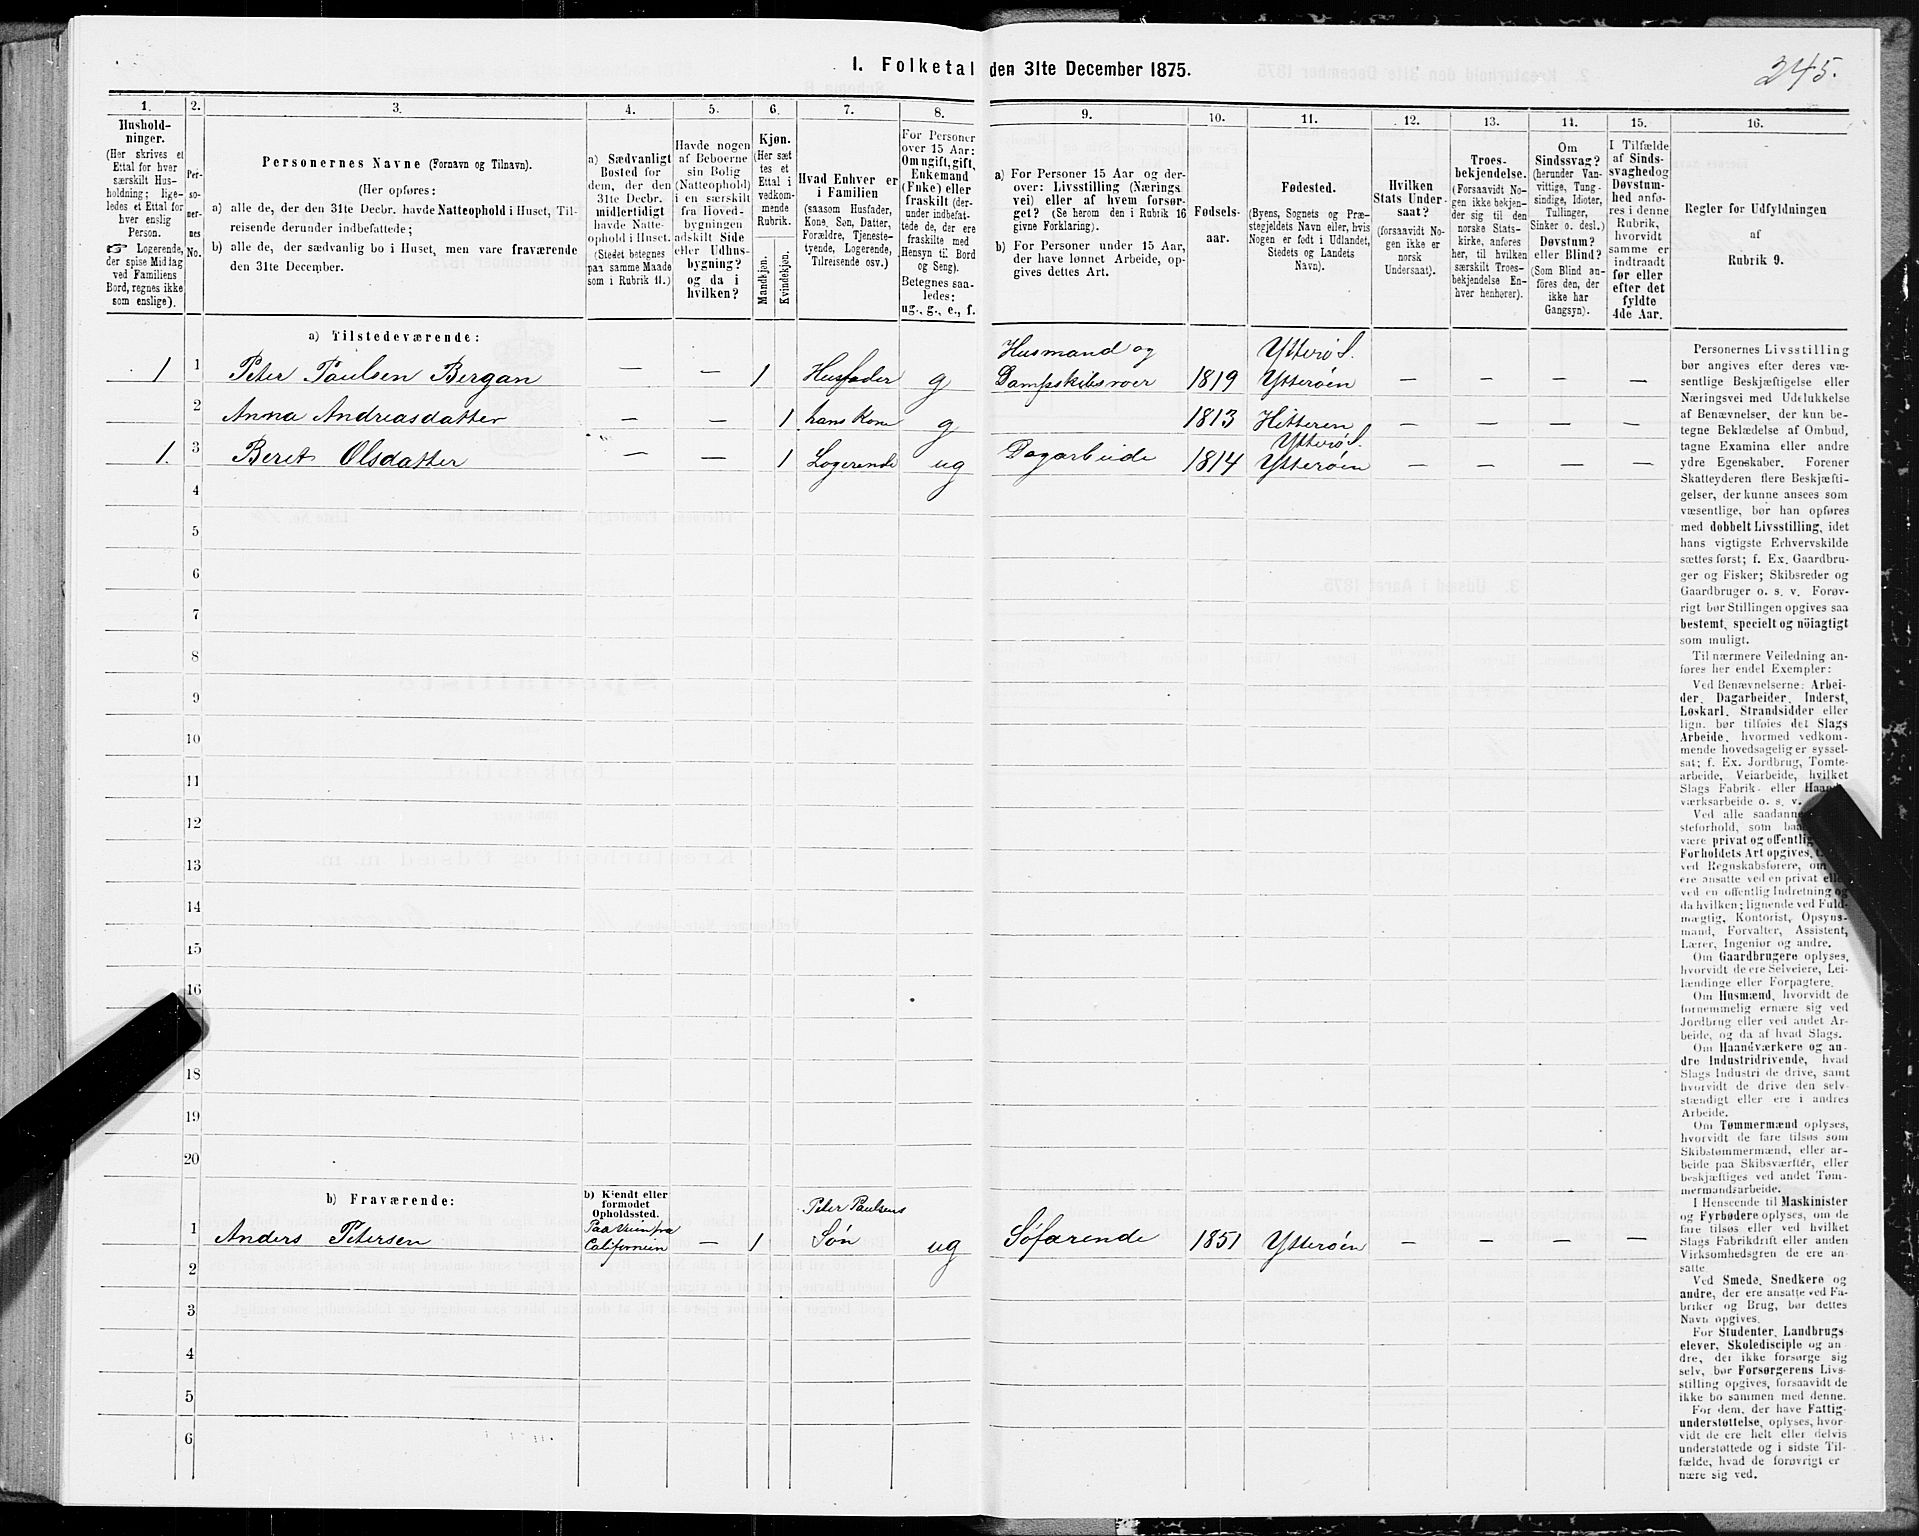 I. Folketal den 31te December 1875.
245.
1.
2.
3.
4.
5.
6.
7.
8.
9.
10.
11.
12.
13.
14.
15.
16.
Hushold-
ninger.
(Her skrives et
Ettal for hver
særskilt Hus-
holdning; lige-
ledes et Ettal for
hver enslig
Person.
☞ Logerende,
der spise Middag
ved Familiens
Bord, regnes ikke
som enslige).
Per-
so-
ner-
nes
No.
Personernes Navne (Fornavn og Tilnavn).
(Her opføres:
a) alle de, der den 31te Decbr. havde Natteophold i Huset, Til-
reisende derunder indbefattede;
b) alle de, der sædvanlig bo i Huset, men vare fraværende
den 31te December.
a) Sædvanligt
Bosted for
dem, der den
31te Decbr.
midlertidigt
havde Natte-
ophold i Huset.
(Stedet betegnes
paa samme Maade
som i Rubrik 11.)
Havde nogen
af Beboerne
sin Bolig
(Natteophold)
i en særskilt
fra Hoved-
bygningen
adskilt Side
eller Udhus-
bygning?
og da i
hvilken?
Kjøn.
(Her sæt-
tes et
Ettal i
vedkom-
mende
Rubrik.
Mandkjøn.
Kvindekjøn.
Hvad Enhver er
i Familien
(saasom Husfader,
Kone, Søn, Datter,
Forældre, Tjeneste-
tyende, Logerende,
Tilreisende osv.)
For Personer
over 15 Aar:
Om ugift, gift,
Enkemand
(Enke) eller
fraskilt (der-
under indbefat-
tede de, der ere
fraskilte med
Hensyn til Bord
og Seng).
Betegnes saa-
ledes:
ug., g., e., f.
a) For Personer 15 Aar og der-
over: Livsstilling (Nærings
vei) eller af hvem forsør-
get? (Se herom den i Rubrik 16
givne Forklaring).
b) For Personer under 15 Aar,
der have lønnet Arbeide, op-
gives dettes Art.
Fødsels-
aar.
Fødested.
(Byens, Sognets og Præ-
stegjeldets Navn eller, hvis
Nogen er født i Udlandet,
Stedets og Landets
Navn).
Hvilken
Stats Under-
saat?
(forsaavidt No-
gen ikke er
norsk
Undersaat).
Troes-
bekjendelse.
(Forsaavidt No-
gen ikke bekjen-
der sig til den
norske Stats-
kirke, anføres
her, til hvilken
særskilt Troes-
bekjendelse En-
hver henhører).
Om
Sindssvag?
(herunder Van-
vittige, Tung-
sindige, Idioter,
Tullinger,
Sinker o. desl.)
Døvstum?
eller Blind?
(Som Blind an-
føres den, der
ikke har
Gangsyn).
I Tilfælde
af Sinds-
svaghed og
Døvstum-
hed anfø-
res i denne
Rubrik,
hvorvidt
samme er
indtraadt
før eller
efter det
fyldte
4de Aar.
Regler for Udfyldningen
af
Rubrik 9.
a) Tilstedeværende:
Husmand og Ytterø S.
1 1 Peter Paulsen Bergan — — 1 Husfader g Dampskibsroer 1819 Ytterøen — — — —
2 Anna Andreasdatter — — 1 hans Kone g 1813 Hitteren — — — —
Ytterø S.
1. 3 Beret Olsdatter — — 1 Logerende ug Dagarbeide 1814 Ytterøen — — — —
4
5
6
7
8
9
10
11
12
13
14
15
16
18
19
20
b) Fraværende:
b) Kjendt eller
formodet
Opholdssted.
Peter Paulsens
Paa Veien fra
1 Anders Petersen Californien — 1 Søn ug Søfarende 1851 Ytterøen — — — —
2
3
4
5
6
Personernes Livsstilling
bør angives efter deres væ-
sentlige Beskjæftigelse eller
Næringsvei med Udelukkelse
af Benævnelser, der kun be-
tegne Beklædelse af Ombud,
tagne Examina eller andre
ydre Egenskaber. Forener
Skatteyderen flere Beskjæfti-
gelser, der kunne ansees som
væsentlige, bør han opføres
med dobbelt Livsstilling, idet
hans vigtigste Erhvervskilde
sættes først; f. Ex. Gaardbru-
ger og Fisker; Skibsreder og
Gaardbruger o. s. v. Forøv-
rigt bør Stillingen opgives saa
bestemt, specielt og nöiagtigt
som muligt.
Til nærmere Veiledning an-
føres her endel Exempler:
Ved Benævnelserne: Arbei-
der, Dagarbeider, Inderst,
Løskarl, Strandsidder eller
lign. bør tilføies det Slags
Arbeide, hvormed vedkom-
mende hovedsagelig er syssel-
sat; f. Ex. Jordbrug, Tomte-
arbeide, Veiarbeide, hvilket
Slags Fabrik- eller Haand-
værksarbeide o. s. v.
Ved alle saadanne
steforhold, som baa
være privat og offentlig
Forholdets Art opgives,
ved Regnskabsførere, om
ere ansatte ved en privat eller
ved en offentlig Indretning og
da hvilken; lignende ved Fuld-
mægtig, Kontorist, Opsyns-
mand, Forvalter, Assistent,
Lærer, Ingeniør og andre.
Om Gaardbrugere oplyses,
hvorvidt de ere Selveiere, Lei-
lændinge eller Forpagtere.
Om Husmænd, hvorvidt de
fornemmelig ernære sig ved
Jordbrug eller ved andet Ar-
beide, og da af hvad Slags.
Om Haandværkere og an-
dre Industridrivende, hvad
Slags Industri de drive, samt
hvorvidt de drive den selv-
stændigt eller ere i andres
Arbeide.
Om Tømmermænd oplyses,
hvorvidt de fare tilsøs som
Skibstømmermænd, eller ar-
beide paa Skibsværfter, eller
beskjæftiges ved andet Tøm-
mermandsarbeide.
I Henseende til Maskinister
og Fyrbødere oplyses, om de
fare tilsøs eller ved hvilket
Slags Fabrikdrift eller anden
Virksomhedsgren de ere an-
satte.
Ved Smede, Snedkere og
andre, der ere ansatte ved Fa-
briker og Brug, bør dettes
Navn opgives.
For Studenter, Landbrugs
elever, Skoledisciple og an-
dre, der ikke forsørge sig
selv, bør Forsørgerens Livs-
stilling opgives, forsaavidt de
ikke bo sammen med denne.
For dem, der have Fattig-
understøttelse, oplyses, hvor-
vidt de ere helt eller delvis
understøttede og i sidste Til-
fælde, hvad de forøvrigt er-
nære sig ved.